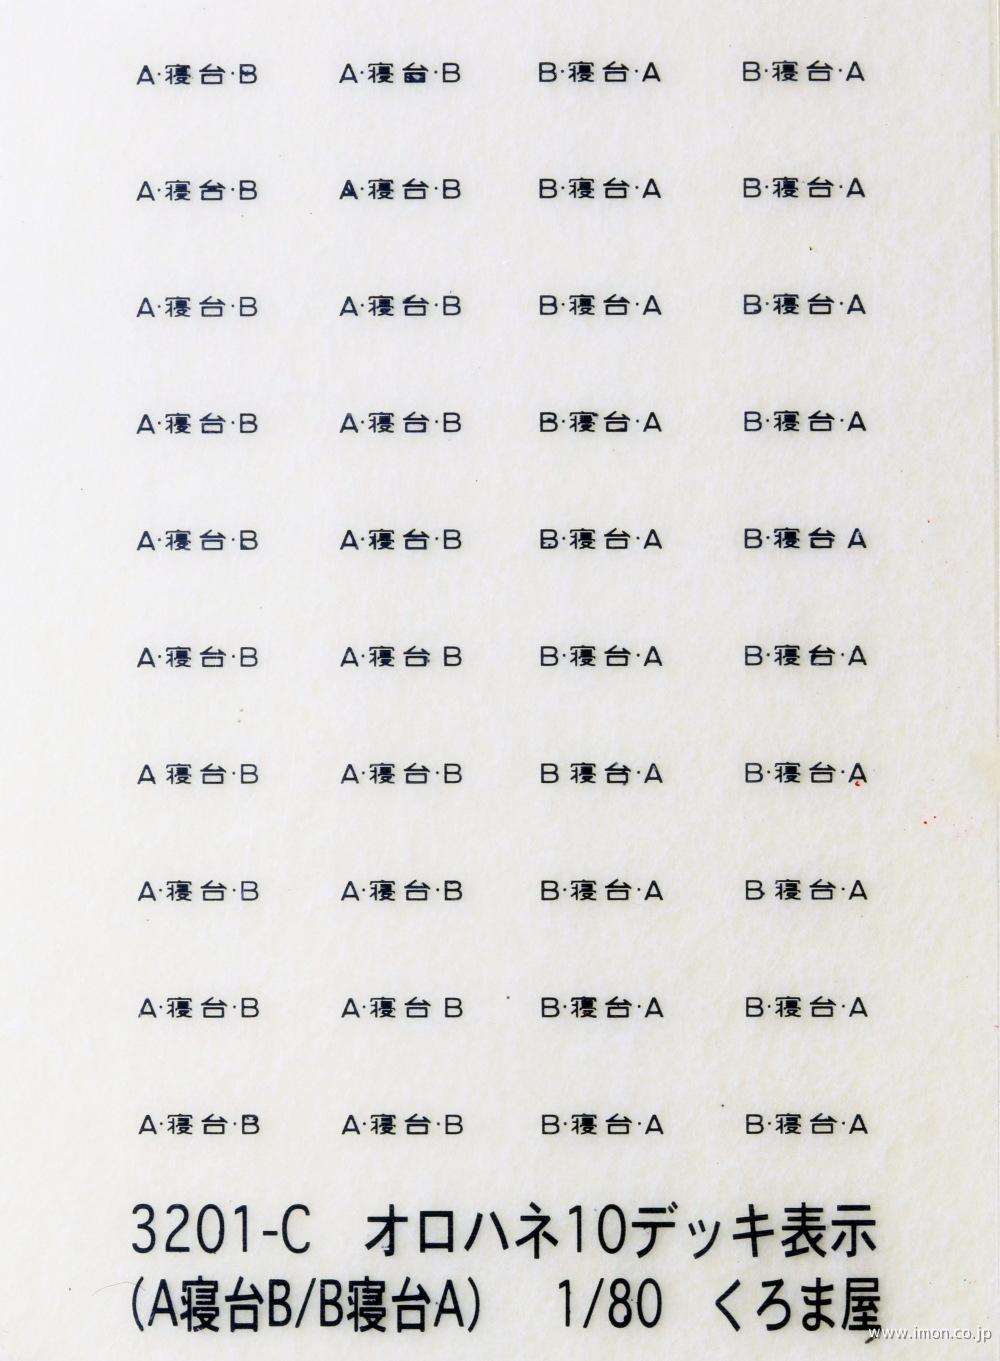 A·寝台·B A·寝台·B B·寝台·A B·寝台·A
A·寝台·B A·寝台·B B·寝台·A B·寝台·A
A·寝台·B A·寝台·B B·寝台·A B·寝台·A
A·寝台·B A·寝台·B B·寝台·A B·寝台·A
A·寝台·B A·寝台·B B·寝台·A B·寝台 A
A·寝台·B A·寝台 B B·寝台·A B·寝台·A
A 寝台·B A·寝台·B B 寝台·A B·寝台·A
A·寝台·B A·寝台·B B·寝台·A B 寝台·A
A·寝台·B A·寝台 B B·寝台·A B·寝台·A
A·寝台·B A·寝台·B B·寝台·A B·寝台·A
3201-C オロハネ10デッキ表示
(A寝台B/B寝台A) 1/80 くろま屋
www.imon.co.jp